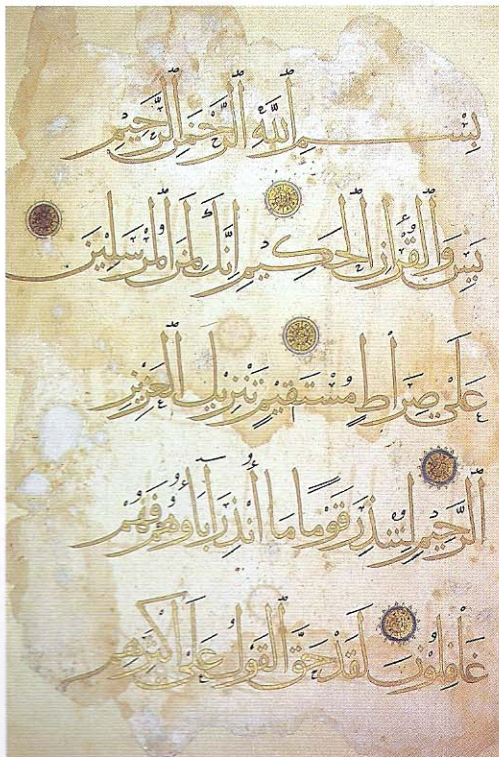 بِسْمِ اللَّهِ الرَّحْمَنِ الرَّحِيمِ
يس وَالْقُرْآنِ الْحَكِيمِ إِنَّكَ لَمِنَ الْمُرْسَلِينَ
عَلَى صِرَاطٍ مُسْتَقِيمٍ تَنْزِيلَ الْعَزِيزِ
الرَّحِيمِ لِتُنْذِرَ قَوْمًا مَا أُنْذِرَ آبَاؤُهُمْ فَهُمْ
غَافِلُونَ لَقَدْ حَقَّ الْقَوْلُ عَلَى أَكْثَرِهِمْ